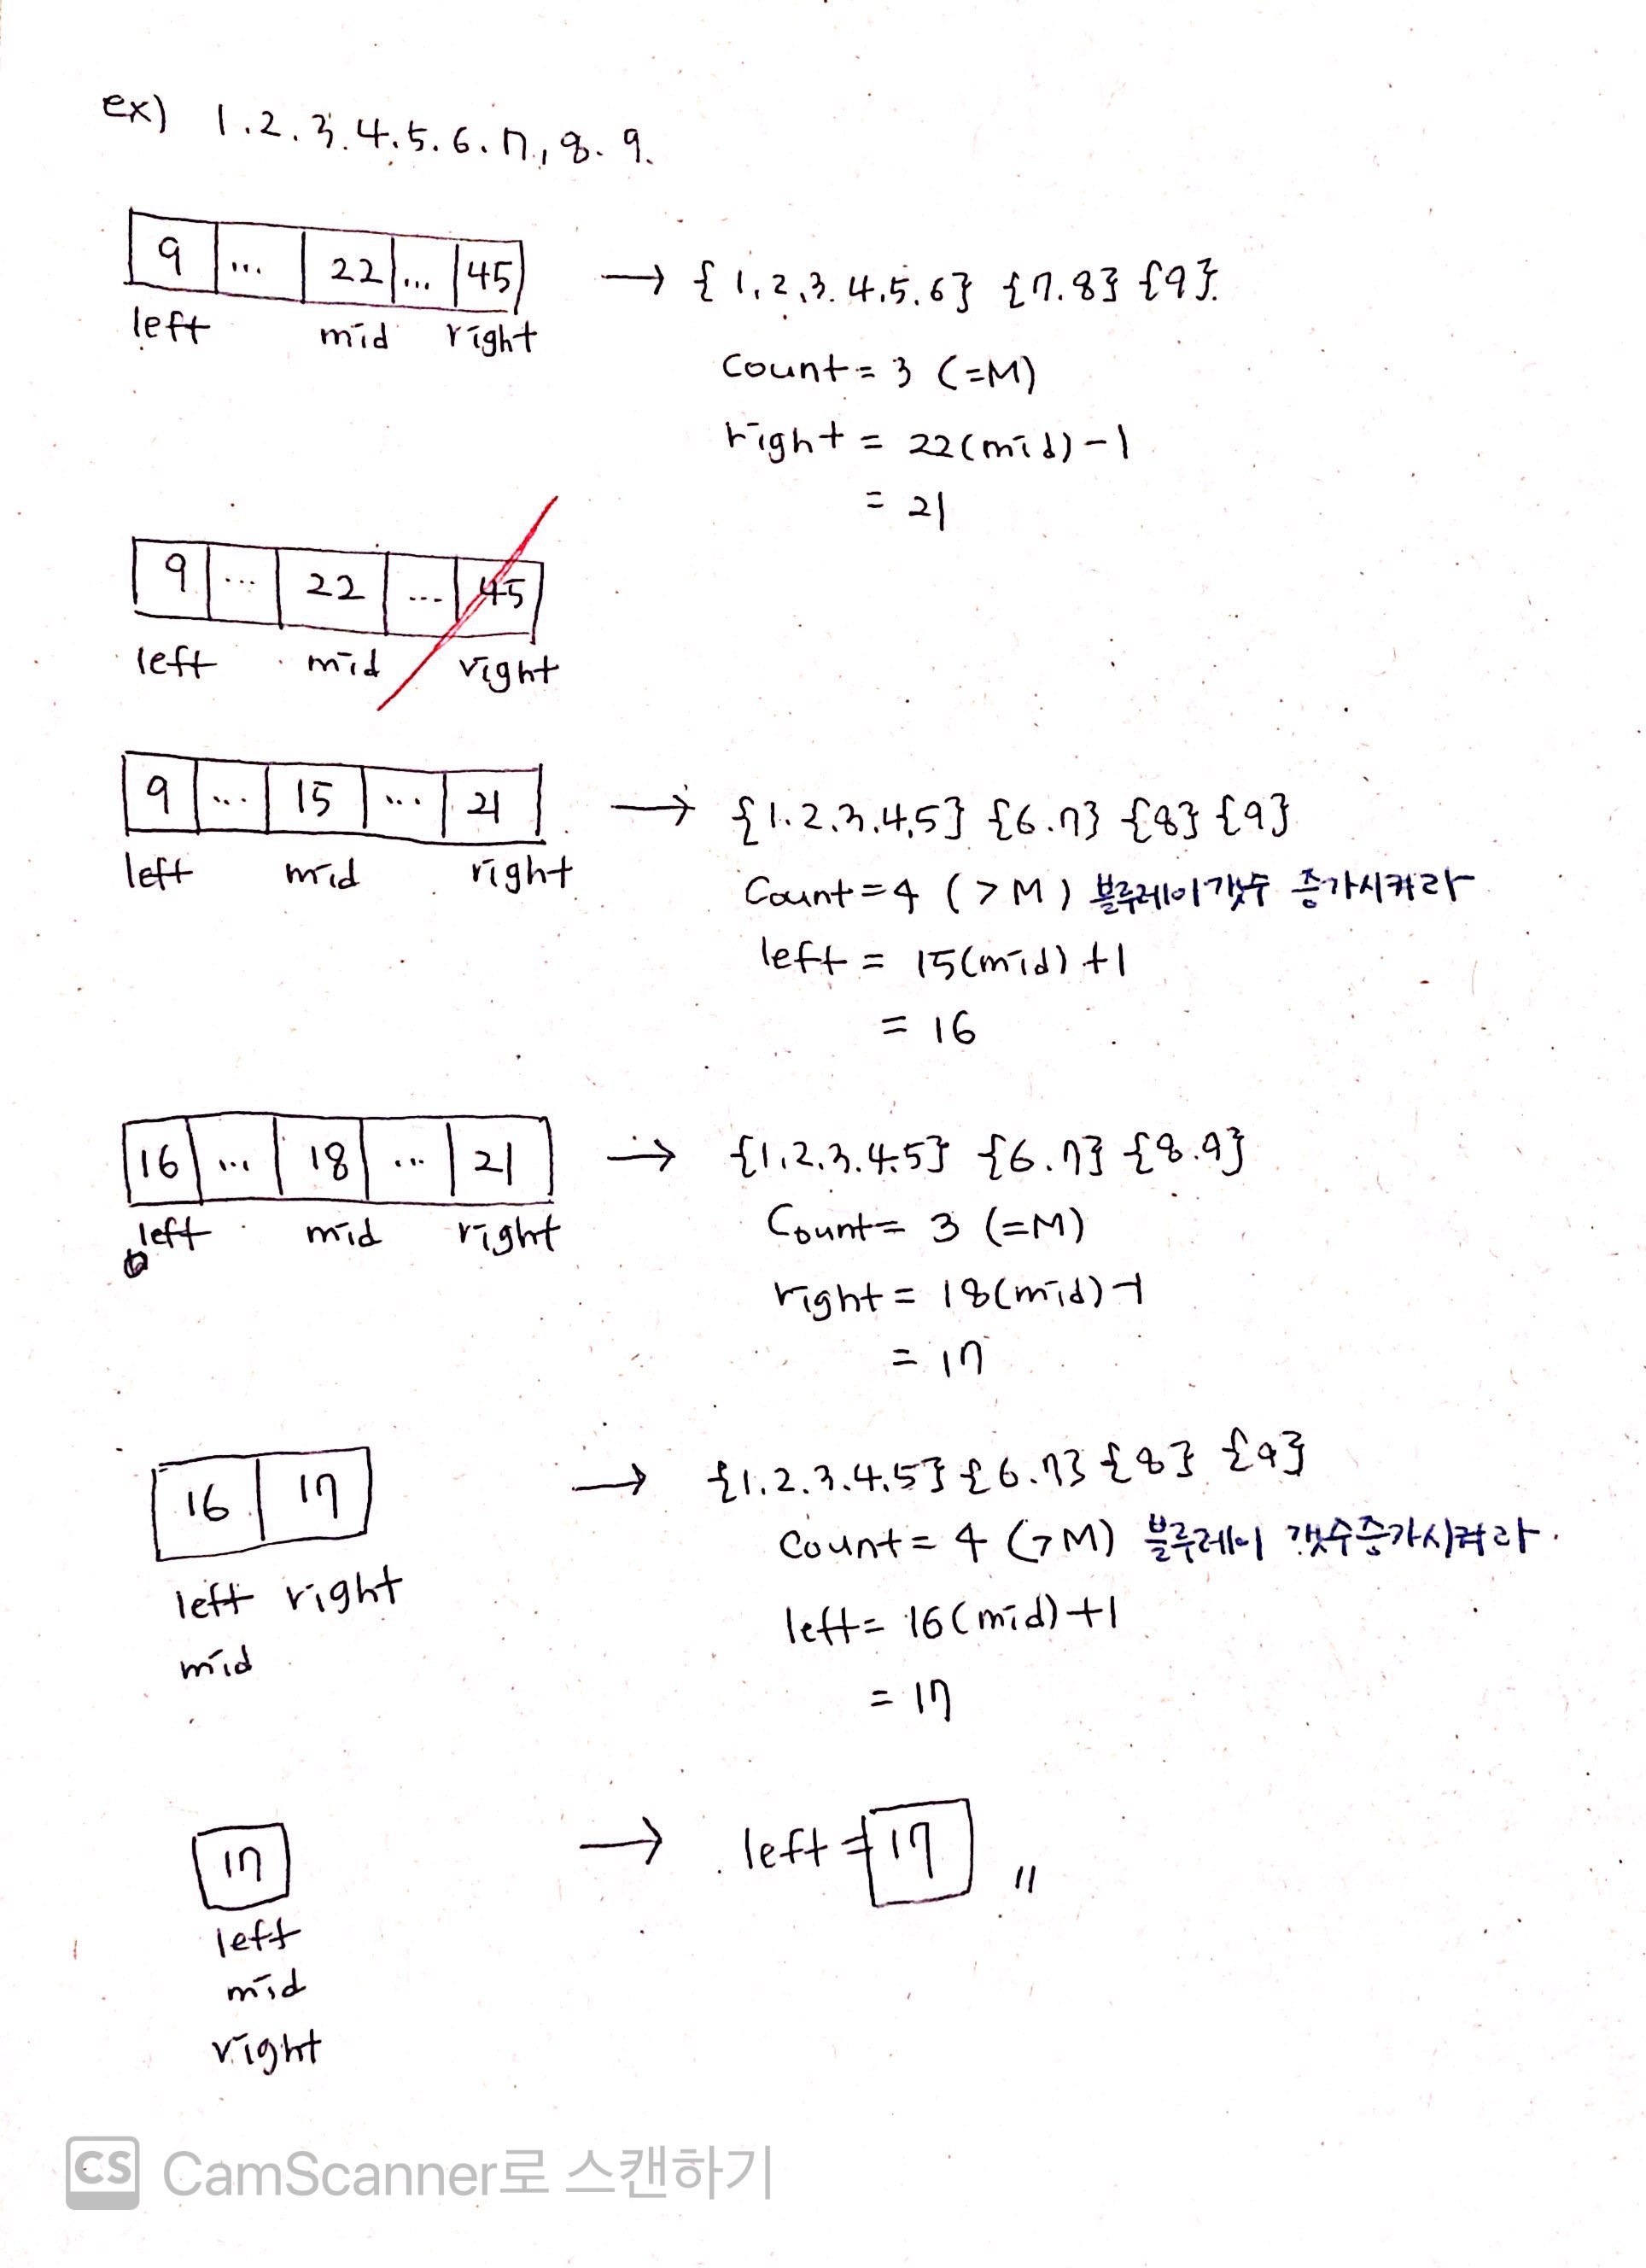 ex) 1.2.3.4.5.6.7,8.9.
9 ... 22 ... 45 → {1,2,3.4.5.6} {7.8} {9}.
left mid right
Count=3 (=M)
right = 22(mid)-1
= 21
9 ... 22 ... 45
left mid right
9 ... 15 ... 21 → {1.2.3.4.5} {6.7} {8} {9}
left mid right
Count=4 (>M) 블루레이갯수 증가시켜라
left = 15(mid)+1
= 16
16 ... 18 ... 21 → {1,2.3.4.5} {6.7} {8.9}
left mid right
Count= 3 (=M)
right= 18(mid)-1
= 17
16 17 → {1.2.3.4.5} {6.7} {8} {9}
Count= 4 (>M) 블루레이 갯수증가시켜라.
left right
left= 16(mid)+1
mid
= 17
17 → left = 17 //
left
mid
right
CS CamScanner로 스캔하기